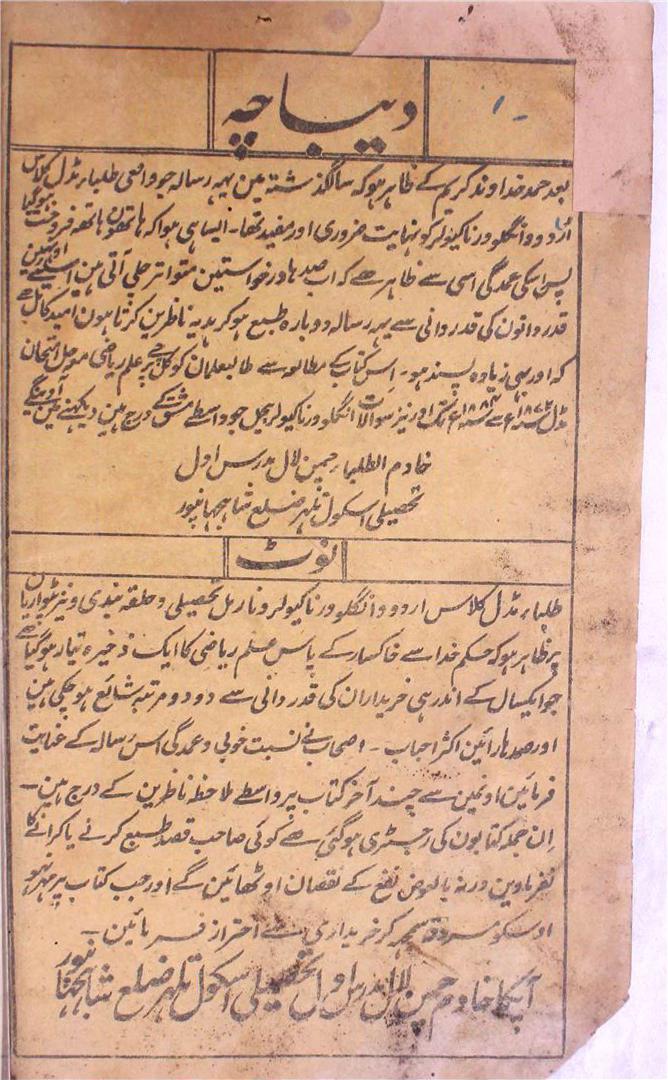 دیباچہ
بعد حمد خداوند کریم کے ظاہر ہو کہ سالگذشتہ مین یہہ رسالہ جو واقعی طلباء مڈل کلاس
اُردو و انگلو ورناکیولر کو نہایت ضروری اور مفید تھا۔ ایسا ہی ہوا کہ ہاتھوں ہاتھ فروخت ہوگیا
پس اسکی عمدگی اسی سے ظاہر ہے کہ اب صدہا درخواستین متواتر چلی آتی ہین اسلیئے
قدردانون کی قدردانی سے یہہ رسالہ دوبارہ طبع ہو کر ہدیہ ناظرین کرتا ہون امید کامل ہے
کہ اور بہی زیادہ پسند ہو۔ اِس کتاب کے مطالعہ سے طالبعلمان کو کل پرچے علم ریاضی مع حل امتحان
مڈل سنہ ۱۸۷۴ع سے سنہ ۱۸۸۴ع تک اور نیز سوالات انگلو ورناکیولر مڈل جو واسطے مشق کے درج ہین دیکھنے مین آوینگے
خادم الطلباء چمن لال مدرس اول
تحصیلی اسکول تلہر ضلع شاہجہانپور
نوٹ
طلباء مڈل کلاس اردو و انگلو ورناکیولر و نارمل تحصیلی و حلقہ بندی و نیز پٹواریان
پر ظاہر ہو کہ حکم خدا سے خاکسار کے پاس علم ریاضی کا ایک ذخیرہ تیار ہو گیا ہے
جو ایکسال کے اندر ہی خریداران کی قدردانی سے دو دو مرتبہ شائع ہو چکی ہین
اور صدہا رائین اکثر احباب۔ اصحاب نے نسبت خوبی و عمدگی اس رسالہ کے عنایت
فرمائین اونمین سے چند آخر کتاب پر واسطے ملاحظہ ناظرین کے درج ہین۔
اِن جملہ کتابون کی رجسٹری ہو گئی ہے کوئی صاحب قصد طبع کرنے یا کرانے کا
نفرماوین ورنہ بالعوض نفع کے نقصان اوٹھائین گے اور جب کتاب پر مہر نہو
اوسکو مسروقہ سمجھ کر خریداری سے احتراز فرمائین۔
آپکا خادم چمن لال مدرس اول تحصیلی اسکول تلہر ضلع شاہجہانپور